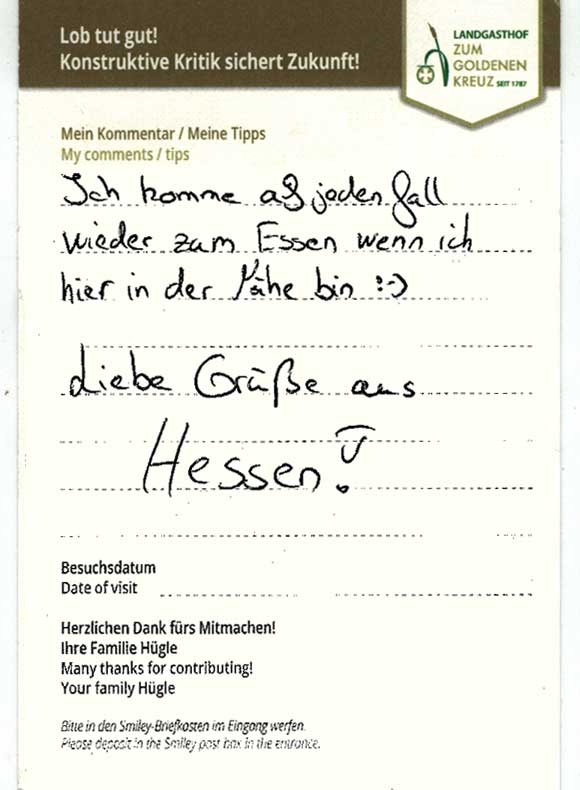 Lob tut gut!
Konstruktive Kritik sichert Zukunft!
LANDGASTHOF
ZUM
GOLDENEN
KREUZ SEIT 1787
Mein Kommentar / Meine Tipps
My comments / tips
Ich komme auf jeden fall
wieder zum Essen wenn ich
hier in der Nähe bin :-)
Liebe Grüße aus
Hessen!
Besuchsdatum
Date of visit
Herzlichen Dank fürs Mitmachen!
Ihre Familie Hügle
Many thanks for contributing!
Your family Hügle
Bitte in den Smiley-Briefkasten im Eingang werfen.
Please deposit in the Smiley post box in the entrance.